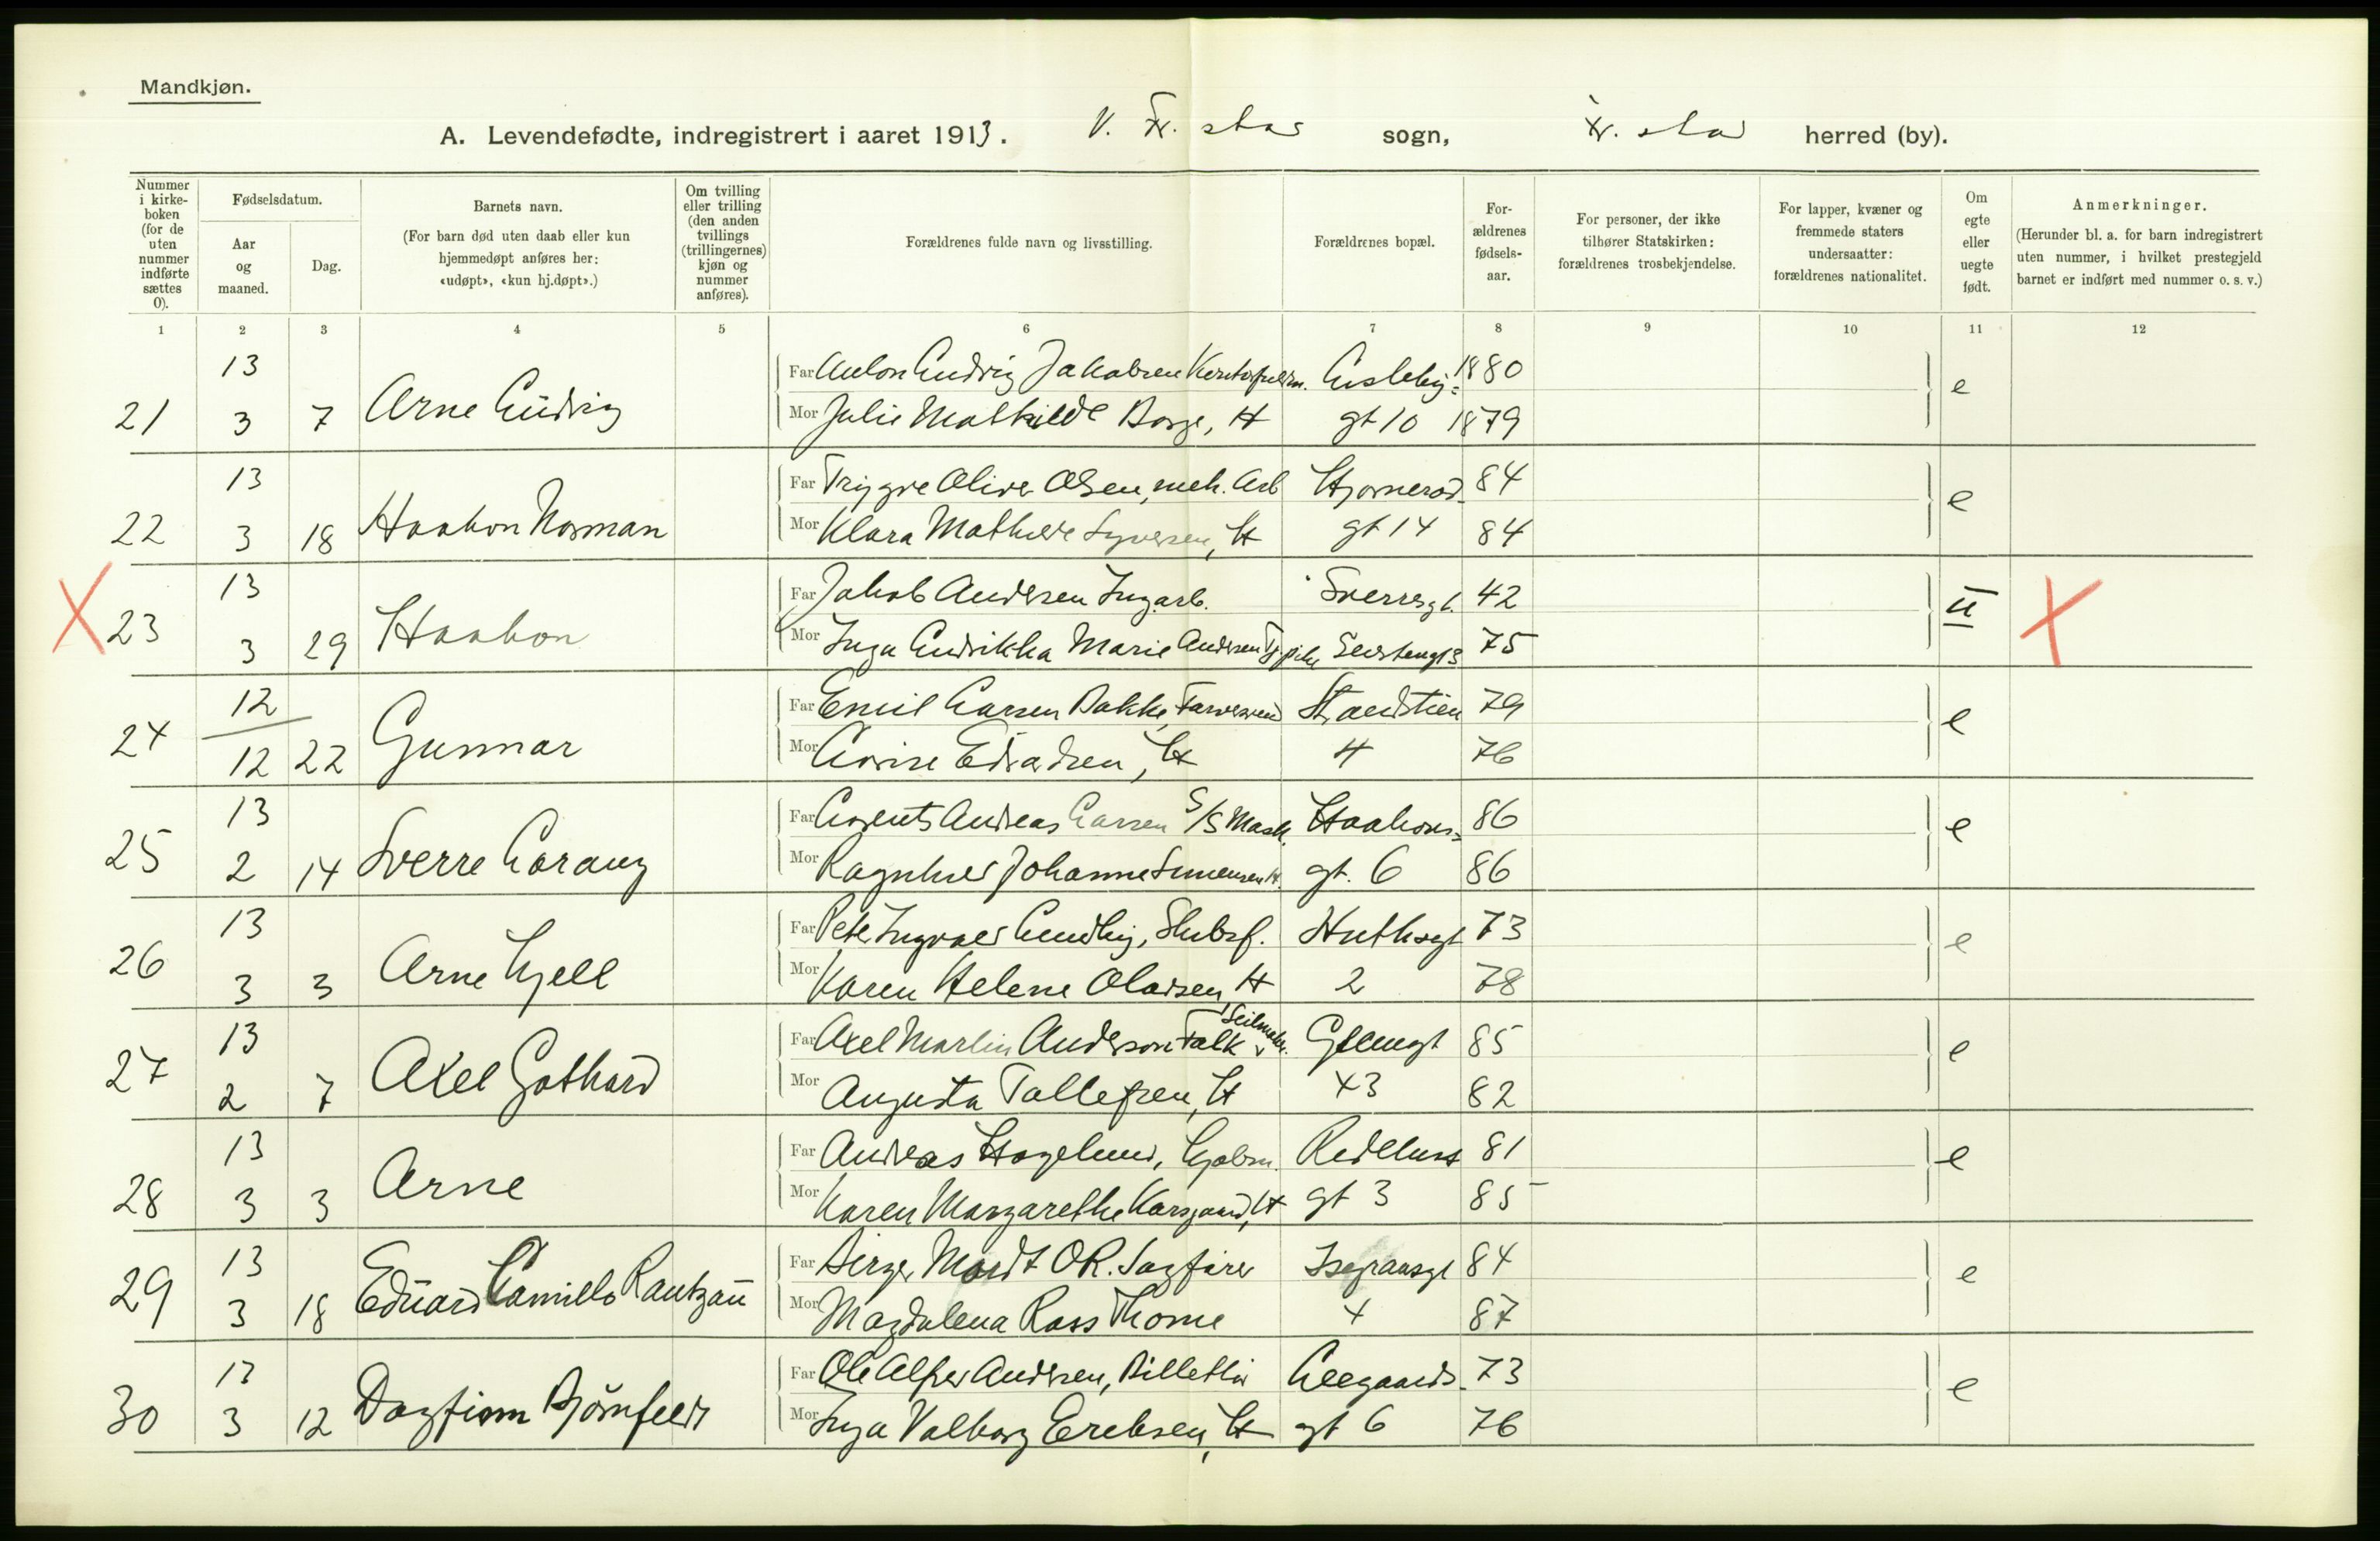 Mandkjøn.
A. Levendefødte, indregistrert i aaret 1913. V. Fr. stad sogn, Fr. stad herred (by).
Nummer i kirke- boken (for de uten nummer indførte sættes 0).
Fødselsdatum.
Aar og maaned.
Dag.
Barnets navn.
(For barn død uten daab eller kun hjemmedøpt anføres her: «udøpt», «kun hj.døpt».)
Om tvilling eller trilling (den anden tvillings (trillingernes) kjøn og nummer anføres).
Forældrenes fulde navn og livsstilling.
Forældrenes bopæl.
For- ældrenes fødsels- aar.
For personer, der ikke tilhører Statskirken: forældrenes trosbekjendelse.
For lapper, kvæner og fremmede staters undersaatter: forældrenes nationalitet.
Om egte eller uegte født.
Anmerkninger.
(Herunder bl. a. for barn indregistrert uten nummer, i hvilket prestegjeld barnet er indført med nummer o. s. v.)
1 2 3 4 5 6 7 8 9 10 11 12
13 Far Anton Ludvig Jakobsen 1880
21 3 7 Arne Ludvig Mor Julie Mathilde Borge, H gt 10 1879 e
13 Far Trygve Oliver Olsen, mek. Arb 84
22 3 18 Haakon Norman Mor Klara Mathilde Syversen, H gt 14 84 e
13 Far Jakob Andersen Sverresgt. 42
X 23 3 29 Haakon Mor Inga Ludrikka Marie Andersen 75 u X
12 Far Emil Larsen Bakke, Strandstien 79
24 12 22 Gunnar Mor Lovise Edvardsen, H 4 76 e
13 Far Lorents Andreas Larsen S/S Mask. Haakons- 86
25 2 14 Sverre Lorang Mor Ragnhild Johanne Simensen H. gt. 6 86 e
13 Far Peter Ingvald Lundby, Huthsgt 73
26 3 3 Arne Kjell Mor Karen Helene Olavsen, H 2 78 e
13 Far Axel Martin Anderson Falk Seilmaker. Glemgt 85
27 2 7 Axel Gothard Mor Augusta Tollefsen, H 43 82 e
13 Far Andreas Hagelund, Kjøbm. 81
28 3 3 Arne Mor Karen Margarethe Korsgaard, H gt 3 85 e
13 Far Birger Mordt O.R. Sagfører Isegransgt 84
29 3 18 Eduard Camillo Rantzau Mor Magdalena Ross Thorne 4 87 e
13 Far Ole Alfred Andersen, Billettør Leegaards- 73
30 3 12 Dagfinn Bjørnfeldt Mor Inga Valborg Eriksen, H gt 6 76 e